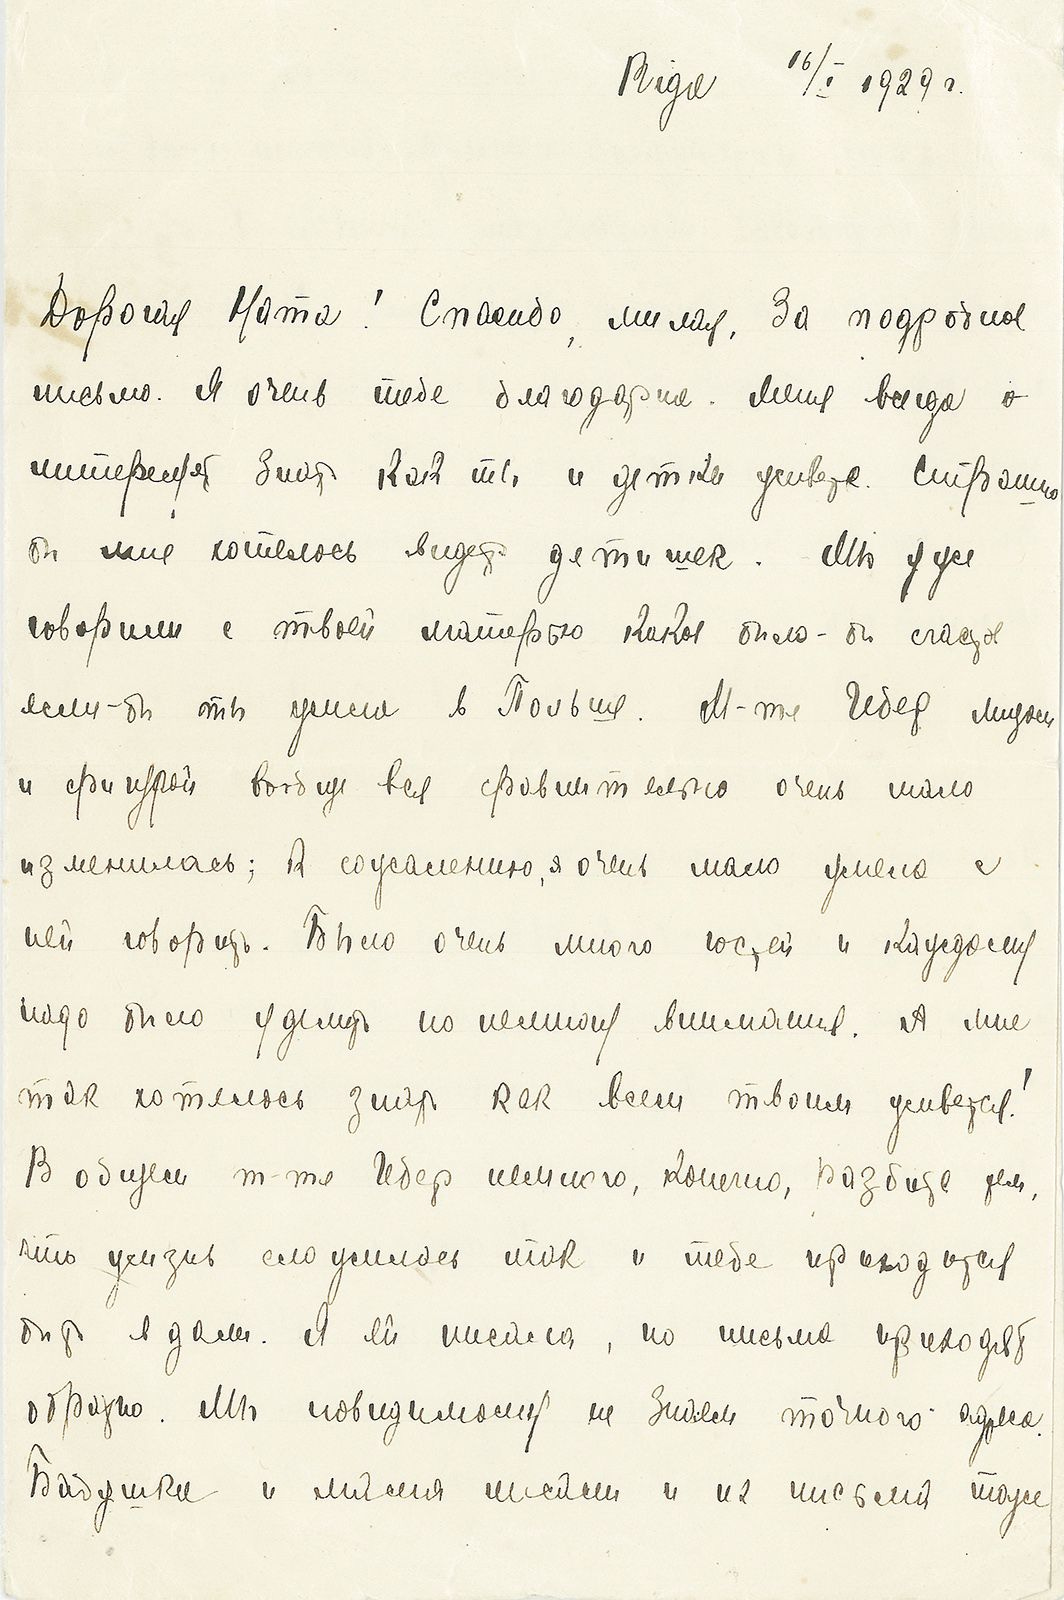 Riga 16/I 1929 г.
Дорогая Ната! Спасибо, милая, за подробное
письмо. Я очень тебе благодарна. Меня всегда о
интересует знать как ты и детки живете. Страшно
бы мне хотелось видеть детишек. Мы уже
говорили с твоей матерью какое было-бы счастье
если-бы ты жила в Польше. М-me Ибер лицом
и фигурой вообще вся сравнительно очень мало
изменилась; К сожалению, я очень мало умела с
ней говорить. Было очень много гостей и каждому
надо было уделить по немногу внимания. А мне
так хотелось знать как всем твоим живется!
В общем m-me Ибер немного, конечно, разбита тем,
что жизнь сложилась так и тебе приходится
быть вдали. Я ей писала, но письма приходят
обратно. Мы повидимому не знаем точного адреса.
Бабушка и мама писали и их письма тоже